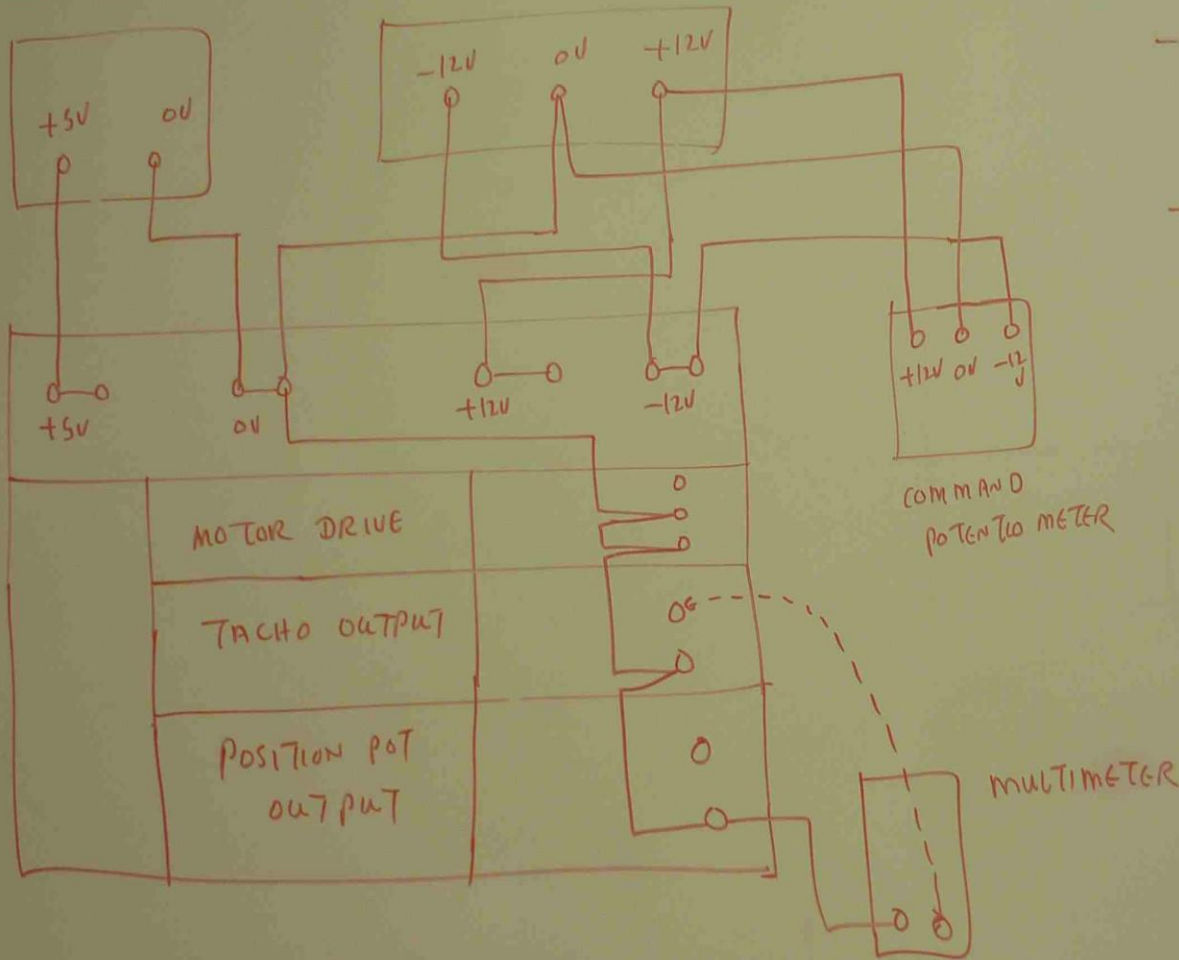 +5V 0V
-12V 0V +12V
+5V 0V +12V -12V
+12V 0V -12
V
COMMAND
POTENTIO METER
MOTOR DRIVE
TACHO OUTPUT
POSITION POT
OUTPUT
MULTIMETER